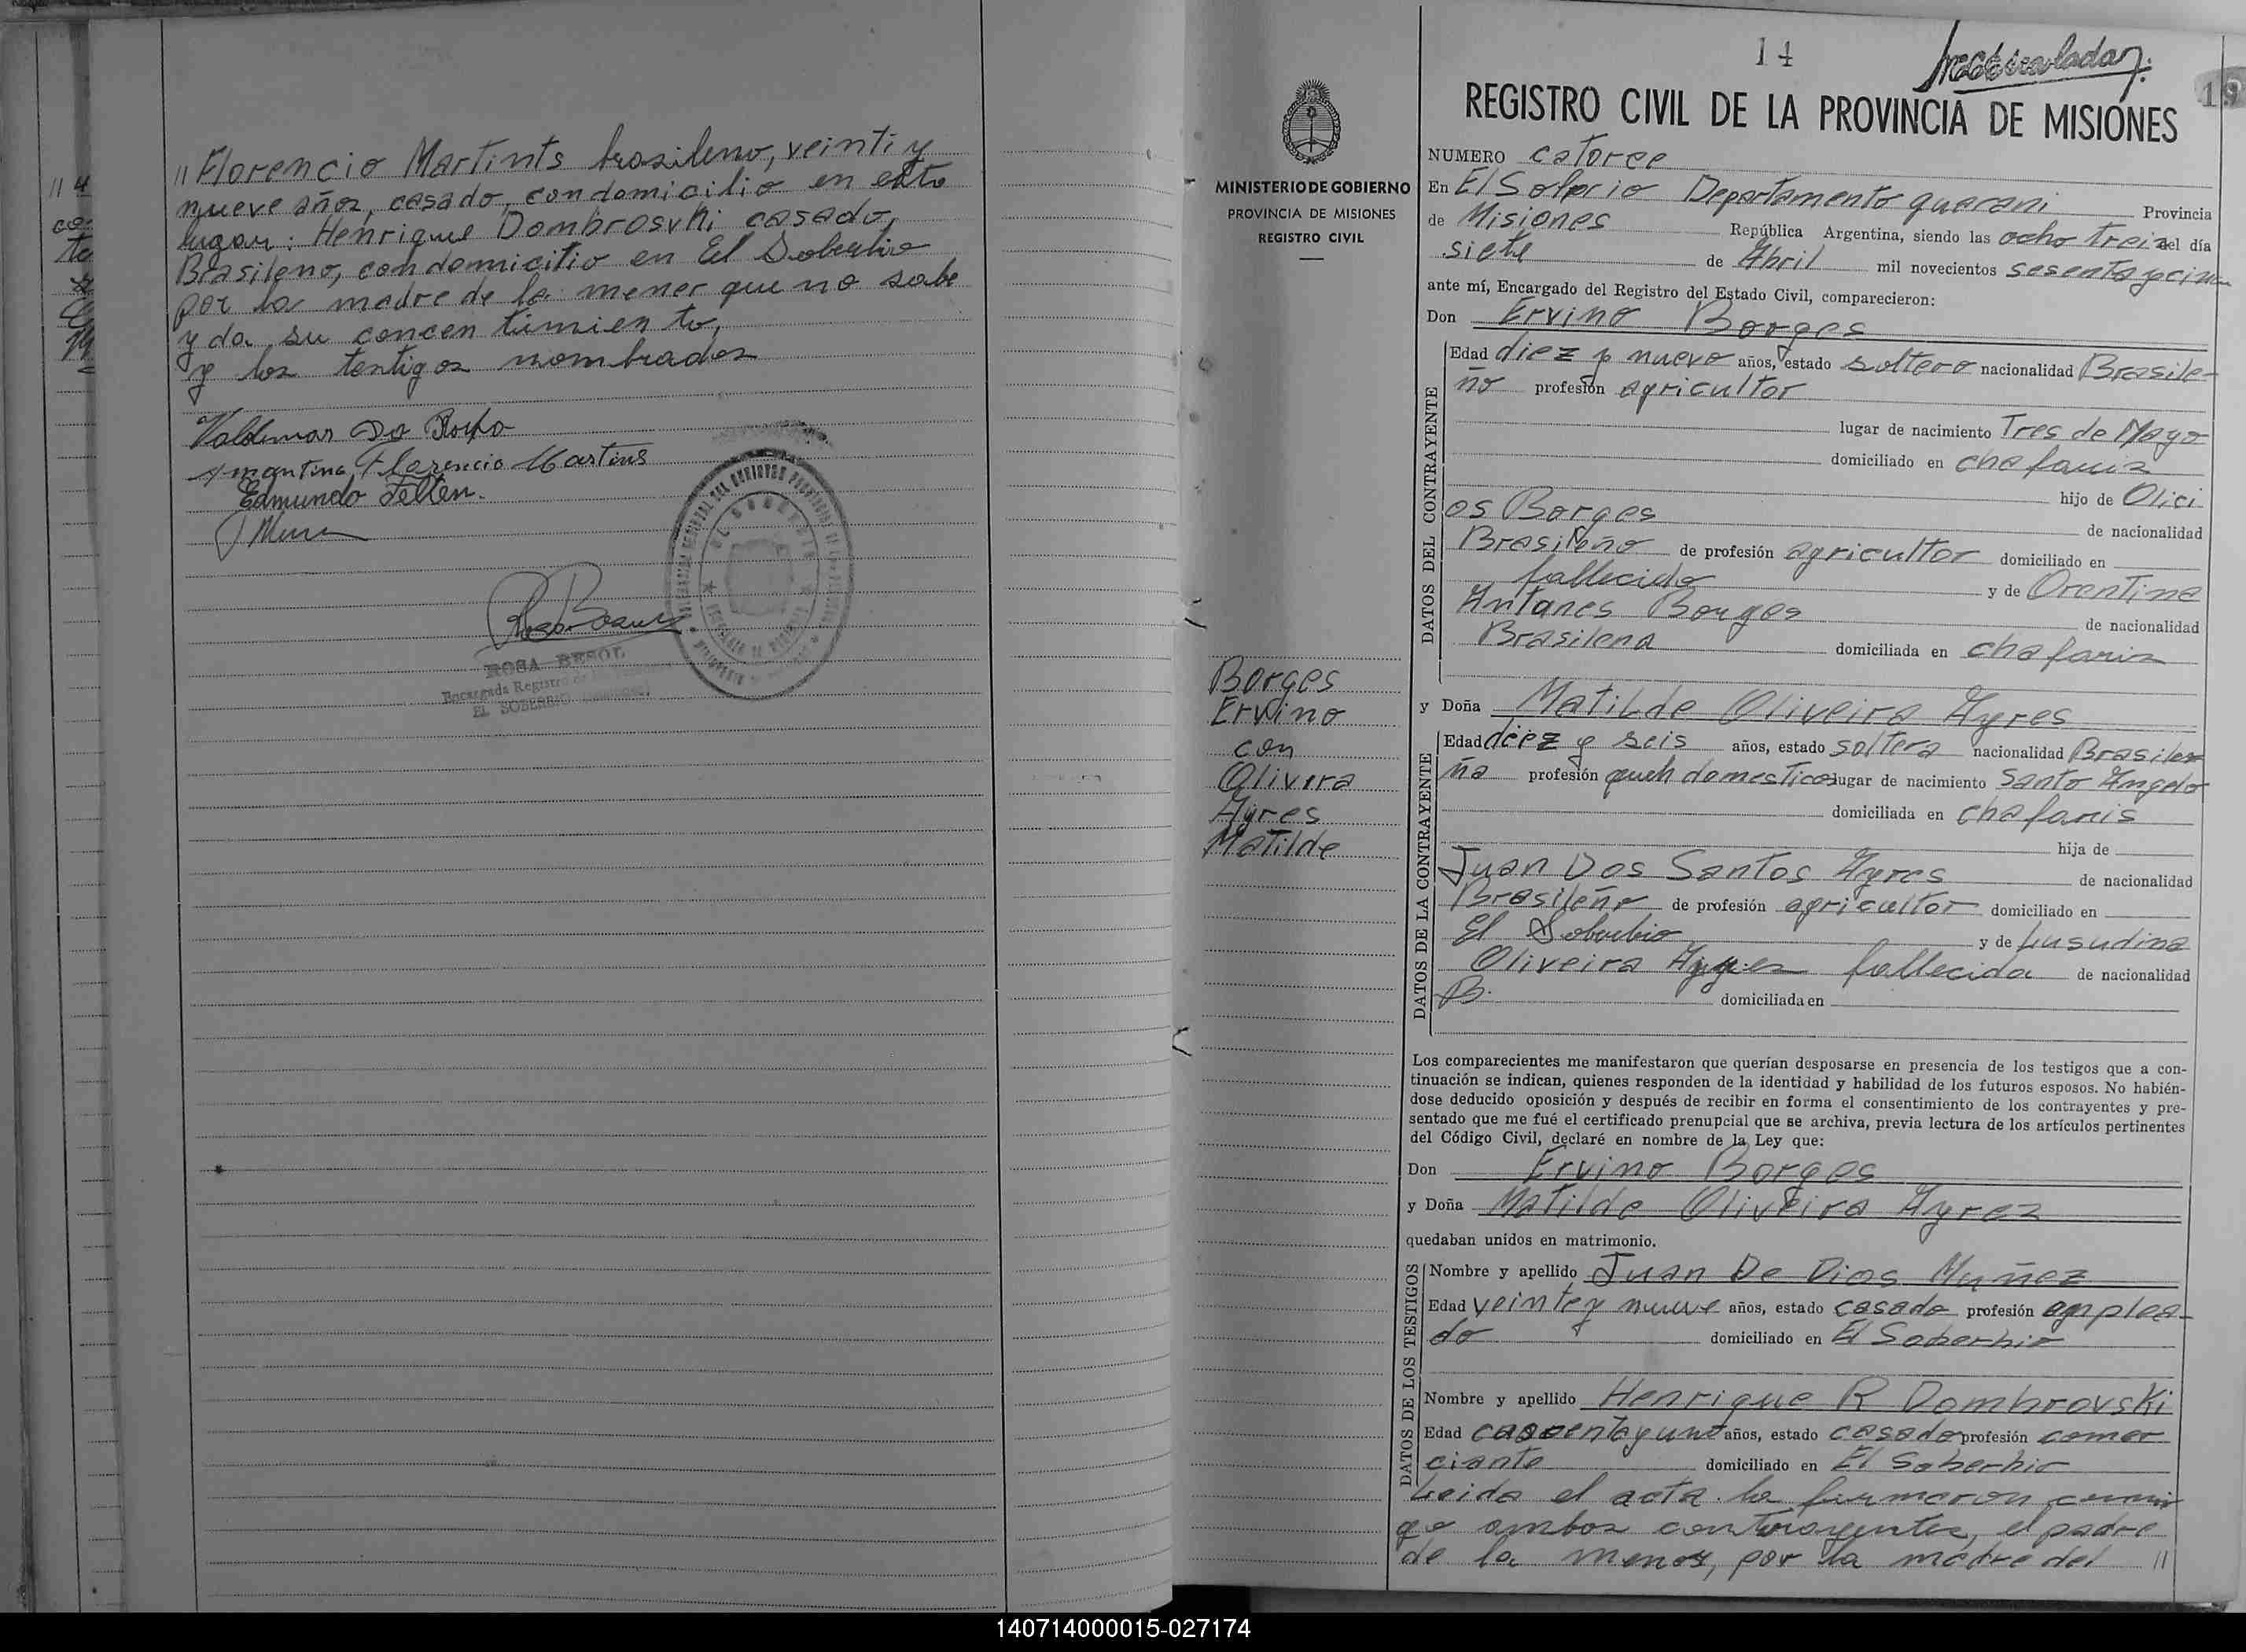 11 4
" Florencio Martints brasileno, veinti y
nueve años, casado, con domicilio en este
lugar: Henrique Dombrosvki casado,
Brasileno, con domicitio en El Soberbio
por la madre de la menor que no sabe
y da su concentimiento,
y los testigos nombrados
Valdemar Da
Florencio Martins
Edmundo Felten.
ROSA BESOL
Encargada Registro de las Personas
EL SOBERBIO (Misiones)
14
19
REGISTRO CIVIL DE LA PROVINCIA DE MISIONES
MINISTERIO DE GOBIERNO
PROVINCIA DE MISIONES
REGISTRO CIVIL
NUMERO catorce
En El Departamento guarani Provincia
de Misiones República Argentina, siendo las ocho treiz del día
siete de Abril mil novecientos sesenta y cin
ante mí, Encargado del Registro del Estado Civil, comparecieron:
Don Ervino Borges
DATOS DEL CONTRAYENTE
Edad diez y nueve años, estado soltero nacionalidad Brasile-
ño profesión agricultor
lugar de nacimiento Tres de Mayo
domiciliado en chafariz
hijo de Olici
os Borges de nacionalidad
Brasileño de profesión agricultor domiciliado en
fallecido y de Orentina
Antanes Borges de nacionalidad
Brasilena domiciliada en chafariz
Borges
Ervino
con
Olivera
Ayres
Matilde
y Doña Matilde Oliveira Ayres
DATOS DE LA CONTRAYENTE
Edad diez y seis años, estado soltera nacionalidad Brasile
ña profesión queh domesticos lugar de nacimiento Santo Angelo
domiciliada en chafaris
hija de
Juan Dos Santos Ayres de nacionalidad
Brasileño de profesión agricultor domiciliado en
El Soberbio y de Lusudina
Oliveira Ayres fallecida de nacionalidad
B. domiciliada en
Los comparecientes me manifestaron que querían desposarse en presencia de los testigos que a con-
tinuación se indican, quienes responden de la identidad y habilidad de los futuros esposos. No habién-
dose deducido oposición y después de recibir en forma el consentimiento de los contrayentes y pre-
sentado que me fué el certificado prenupcial que se archiva, previa lectura de los artículos pertinentes
del Código Civil, declaré en nombre de la Ley que:
Don Ervino Borges
y Doña Matilde Oliveira Ayrez
quedaban unidos en matrimonio.
DATOS DE LOS TESTIGOS
Nombre y apellido Juan De Dios Muñez
Edad veinte y nueve años, estado casado profesión emplea-
do domiciliado en El Soberbio
Nombre y apellido Henrique R Dombrovski
Edad años, estado casado profesión comer
ciante domiciliado en El Soberbio
Leida el acta la firmaron conmi
go ambos contrayentes, el padre
de la menor, por la madre del "
140714000015-027174